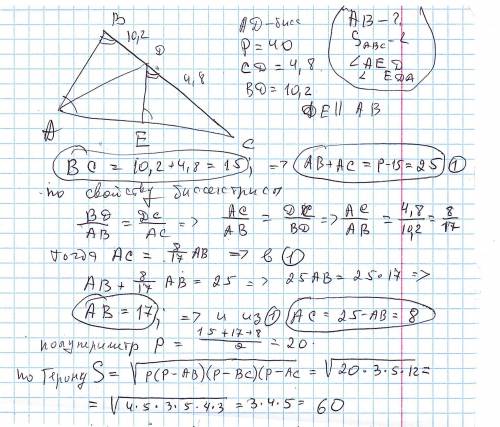 B
10,2
D
4,8
A
E
C
AD-бисс
P = 40
CD = 4,8
BD = 10,2
DE || AB
AB - ?
S ABC - ?
∠AED
∠ EDA
BC = 10,2 + 4,8 = 15; => AB + AC = P - 15 = 25 ①
по свойству биссектрисы
BD/AB = DC/AC => AC/AB = DC/BD => AC/AB = 4,8/10,2 = 8/17
тогда AC = 8/17 AB => в ①
AB + 8/17 AB = 25 => 25AB = 25·17 =>
AB = 17; => и из ① AC = 25 - AB = 8
полупериметр P = 15+17+8/2 = 20.
по Герону S = √P(P-AB)(P-BC)(P-AC = √20·3·5·12 =
= √4·5·3·5·4·3 = 3·4·5 = 60